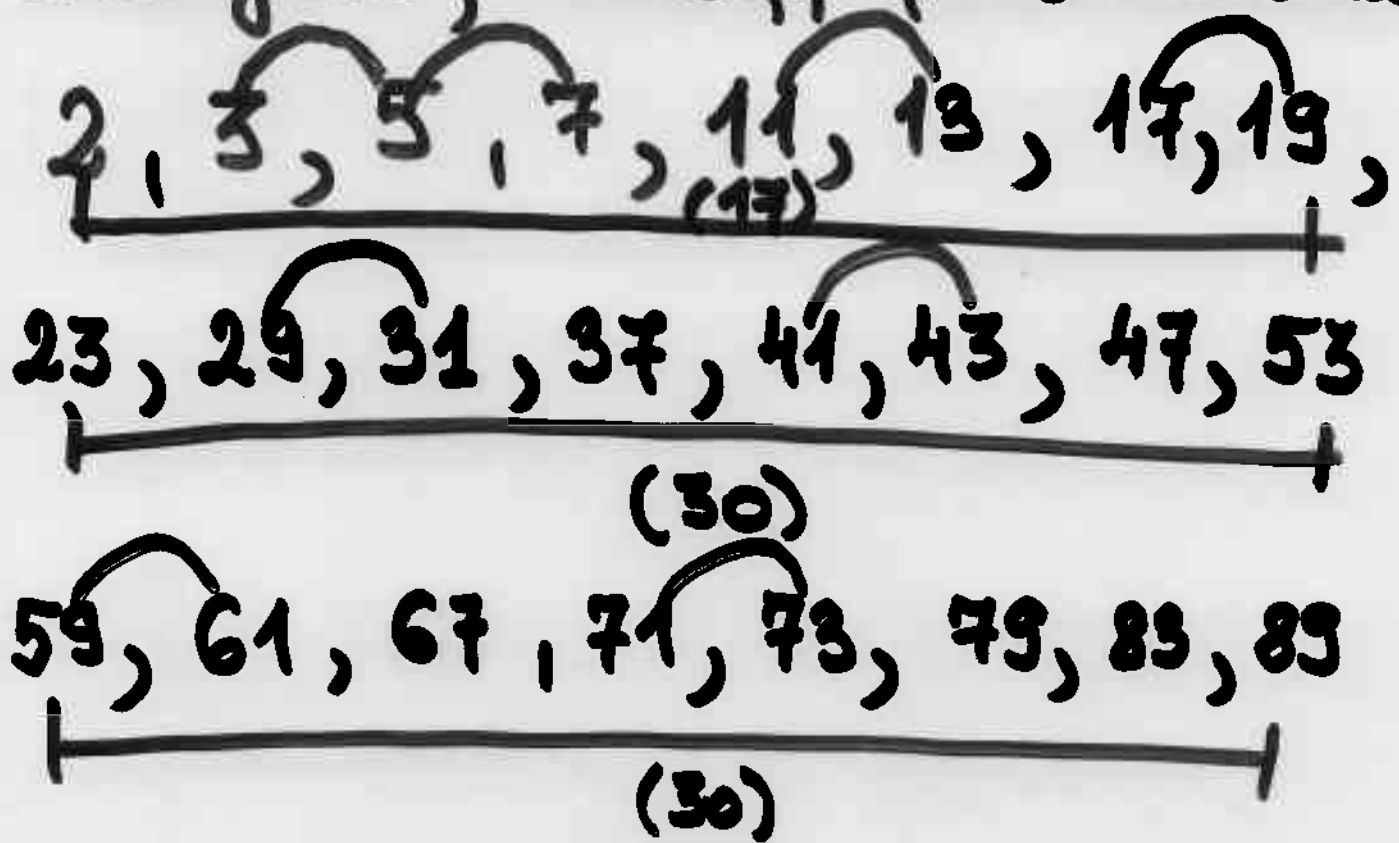 2, 3, 5, 7, 11, 13, 17, 19,
(17)
23, 29, 31, 37, 41, 43, 47, 53
(30)
59, 61, 67, 71, 73, 79, 83, 89
(30)